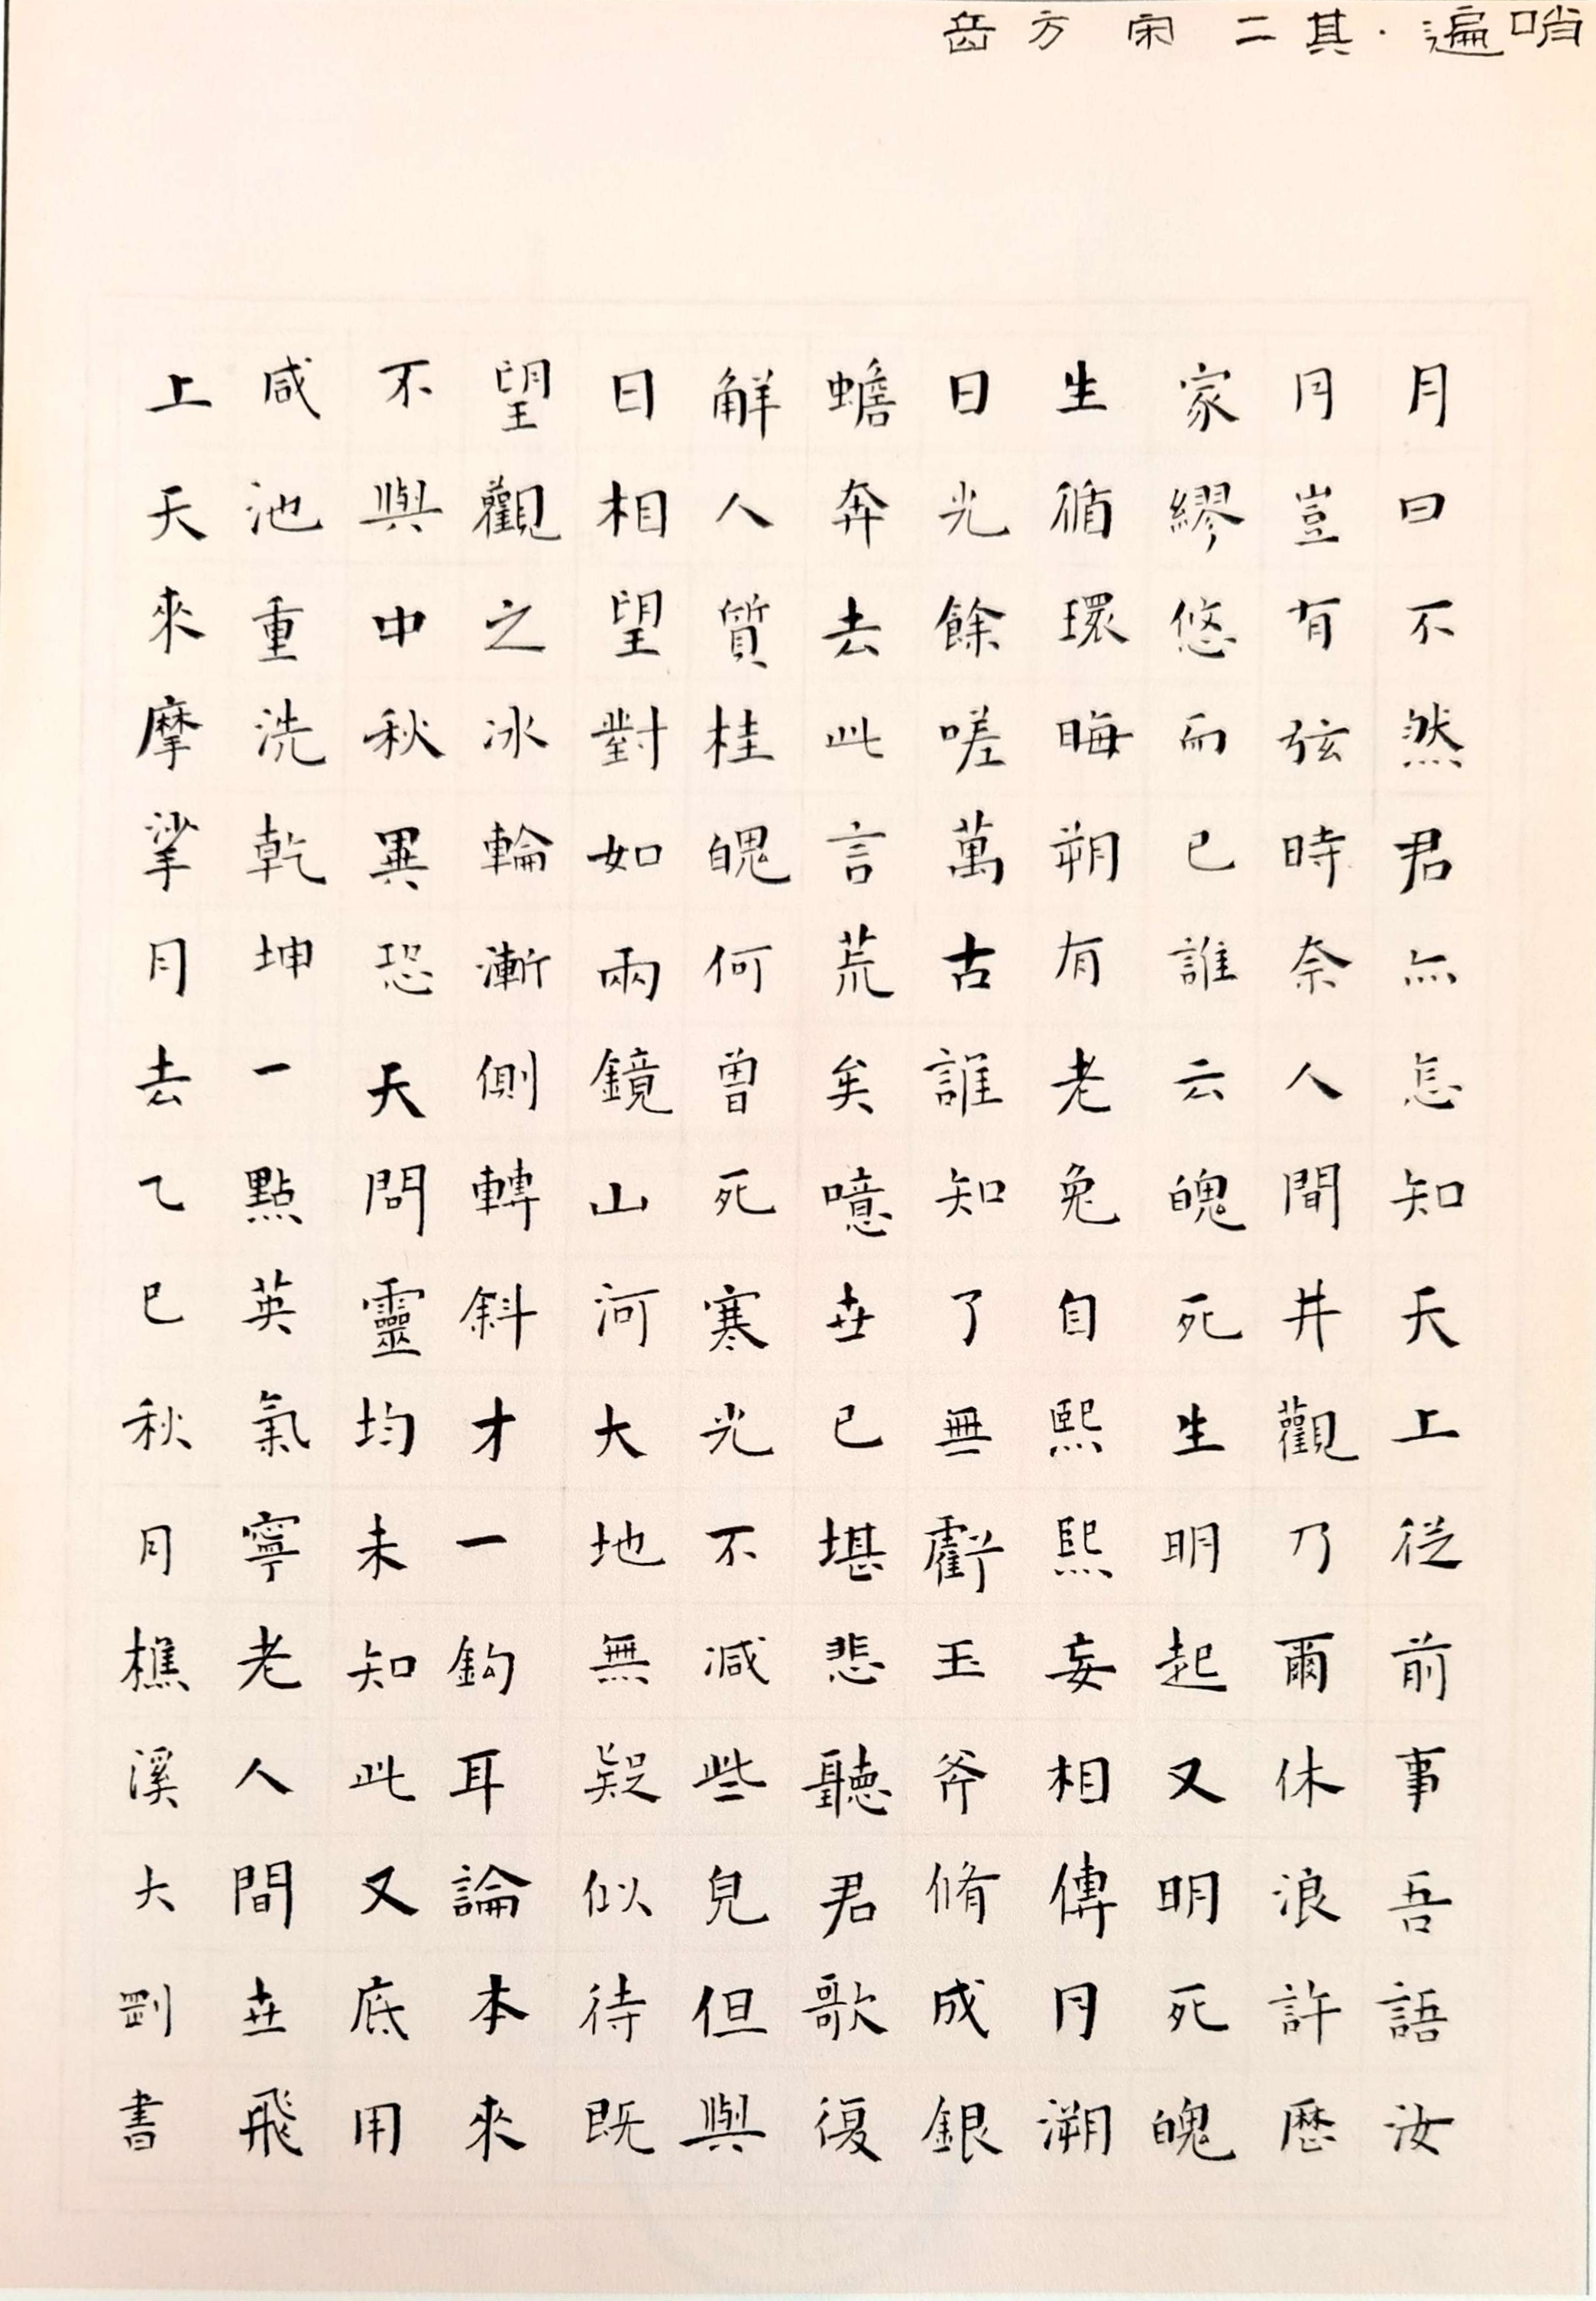 哨遍·其二 宋 方岳
月曰不然君亦怎知天上從前事吾語汝
月豈有弦時奈人間井觀乃爾休浪許歷
家繆悠而已誰云魄死生明起又明死魄
生循環晦朔有老兔自熙熙妄相傳月溯
日光餘嗟萬古誰知了無虧玉斧脩成銀
蟾奔去此言荒矣噫世已堪悲聽君歌復
解人質桂魄何曾死寒光不減些兒但與
日相望對如兩鏡山河大地無疑似待既
望觀之冰輪漸側轉斜才一鈎耳論本來
不與中秋異恐天問靈均未知此又底用
咸池重洗乾坤一點英氣寧老人間世飛
上天來摩挲月去乙巳秋月樵溪大剛書